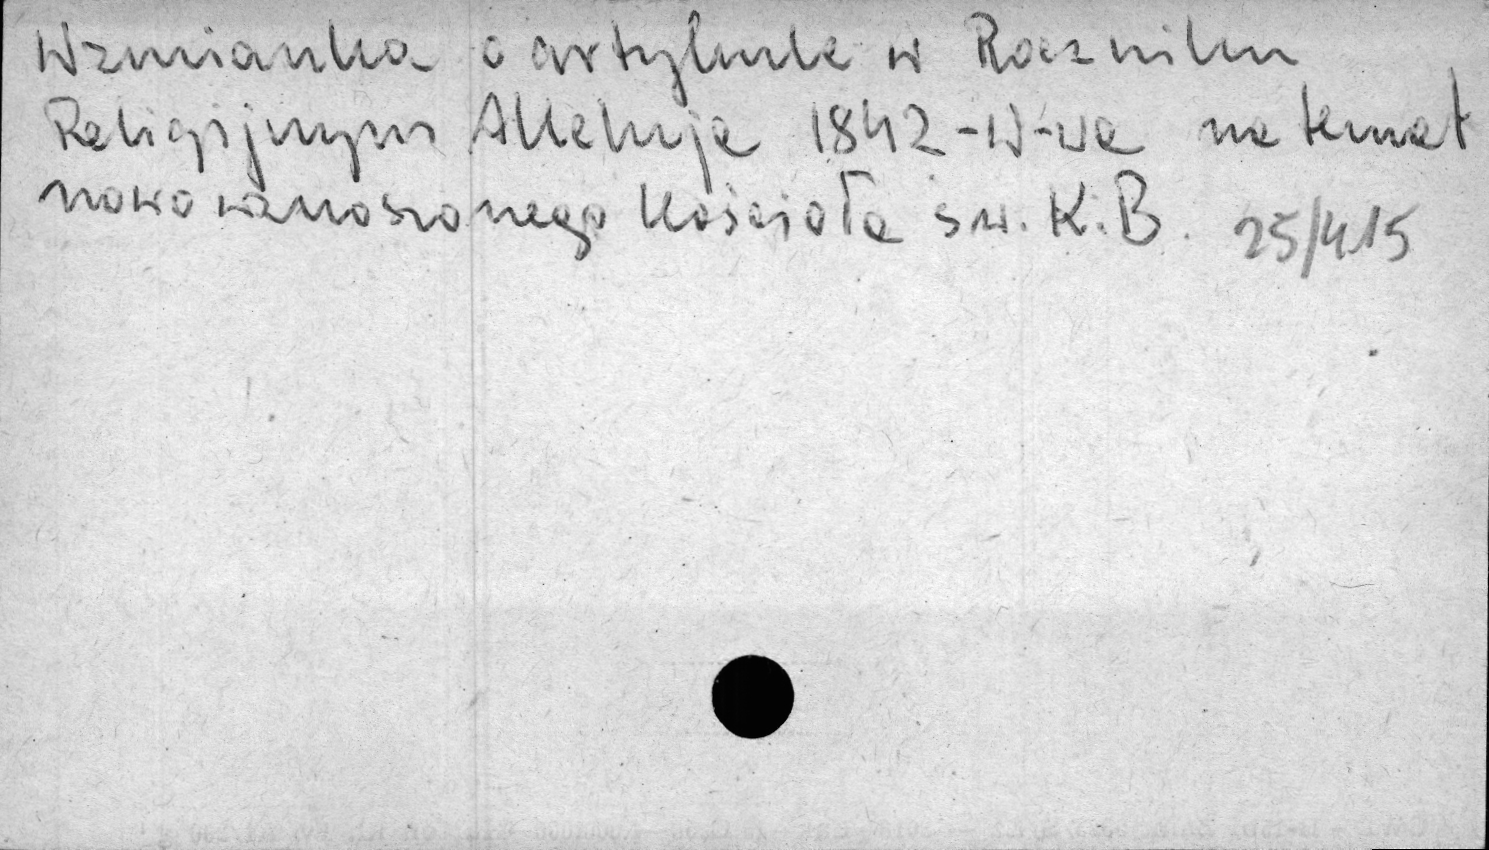 Wzmianka o artykule w Roczniku
Religijnym Alleluja 1842-W-wa na temat
nowo wznoszonego Kościoła św. K.B. 25/415